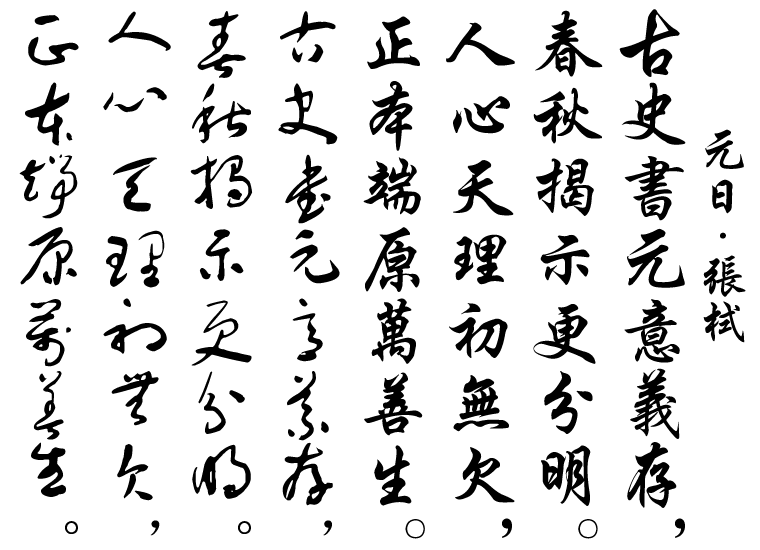 元日·張栻
古史書元意義存，
春秋揭示更分明。
人心天理初無欠，
正本端原萬善生。
古史書元意義存，
春秋揭示更分明。
人心天理初無欠，
正本端原萬善生。